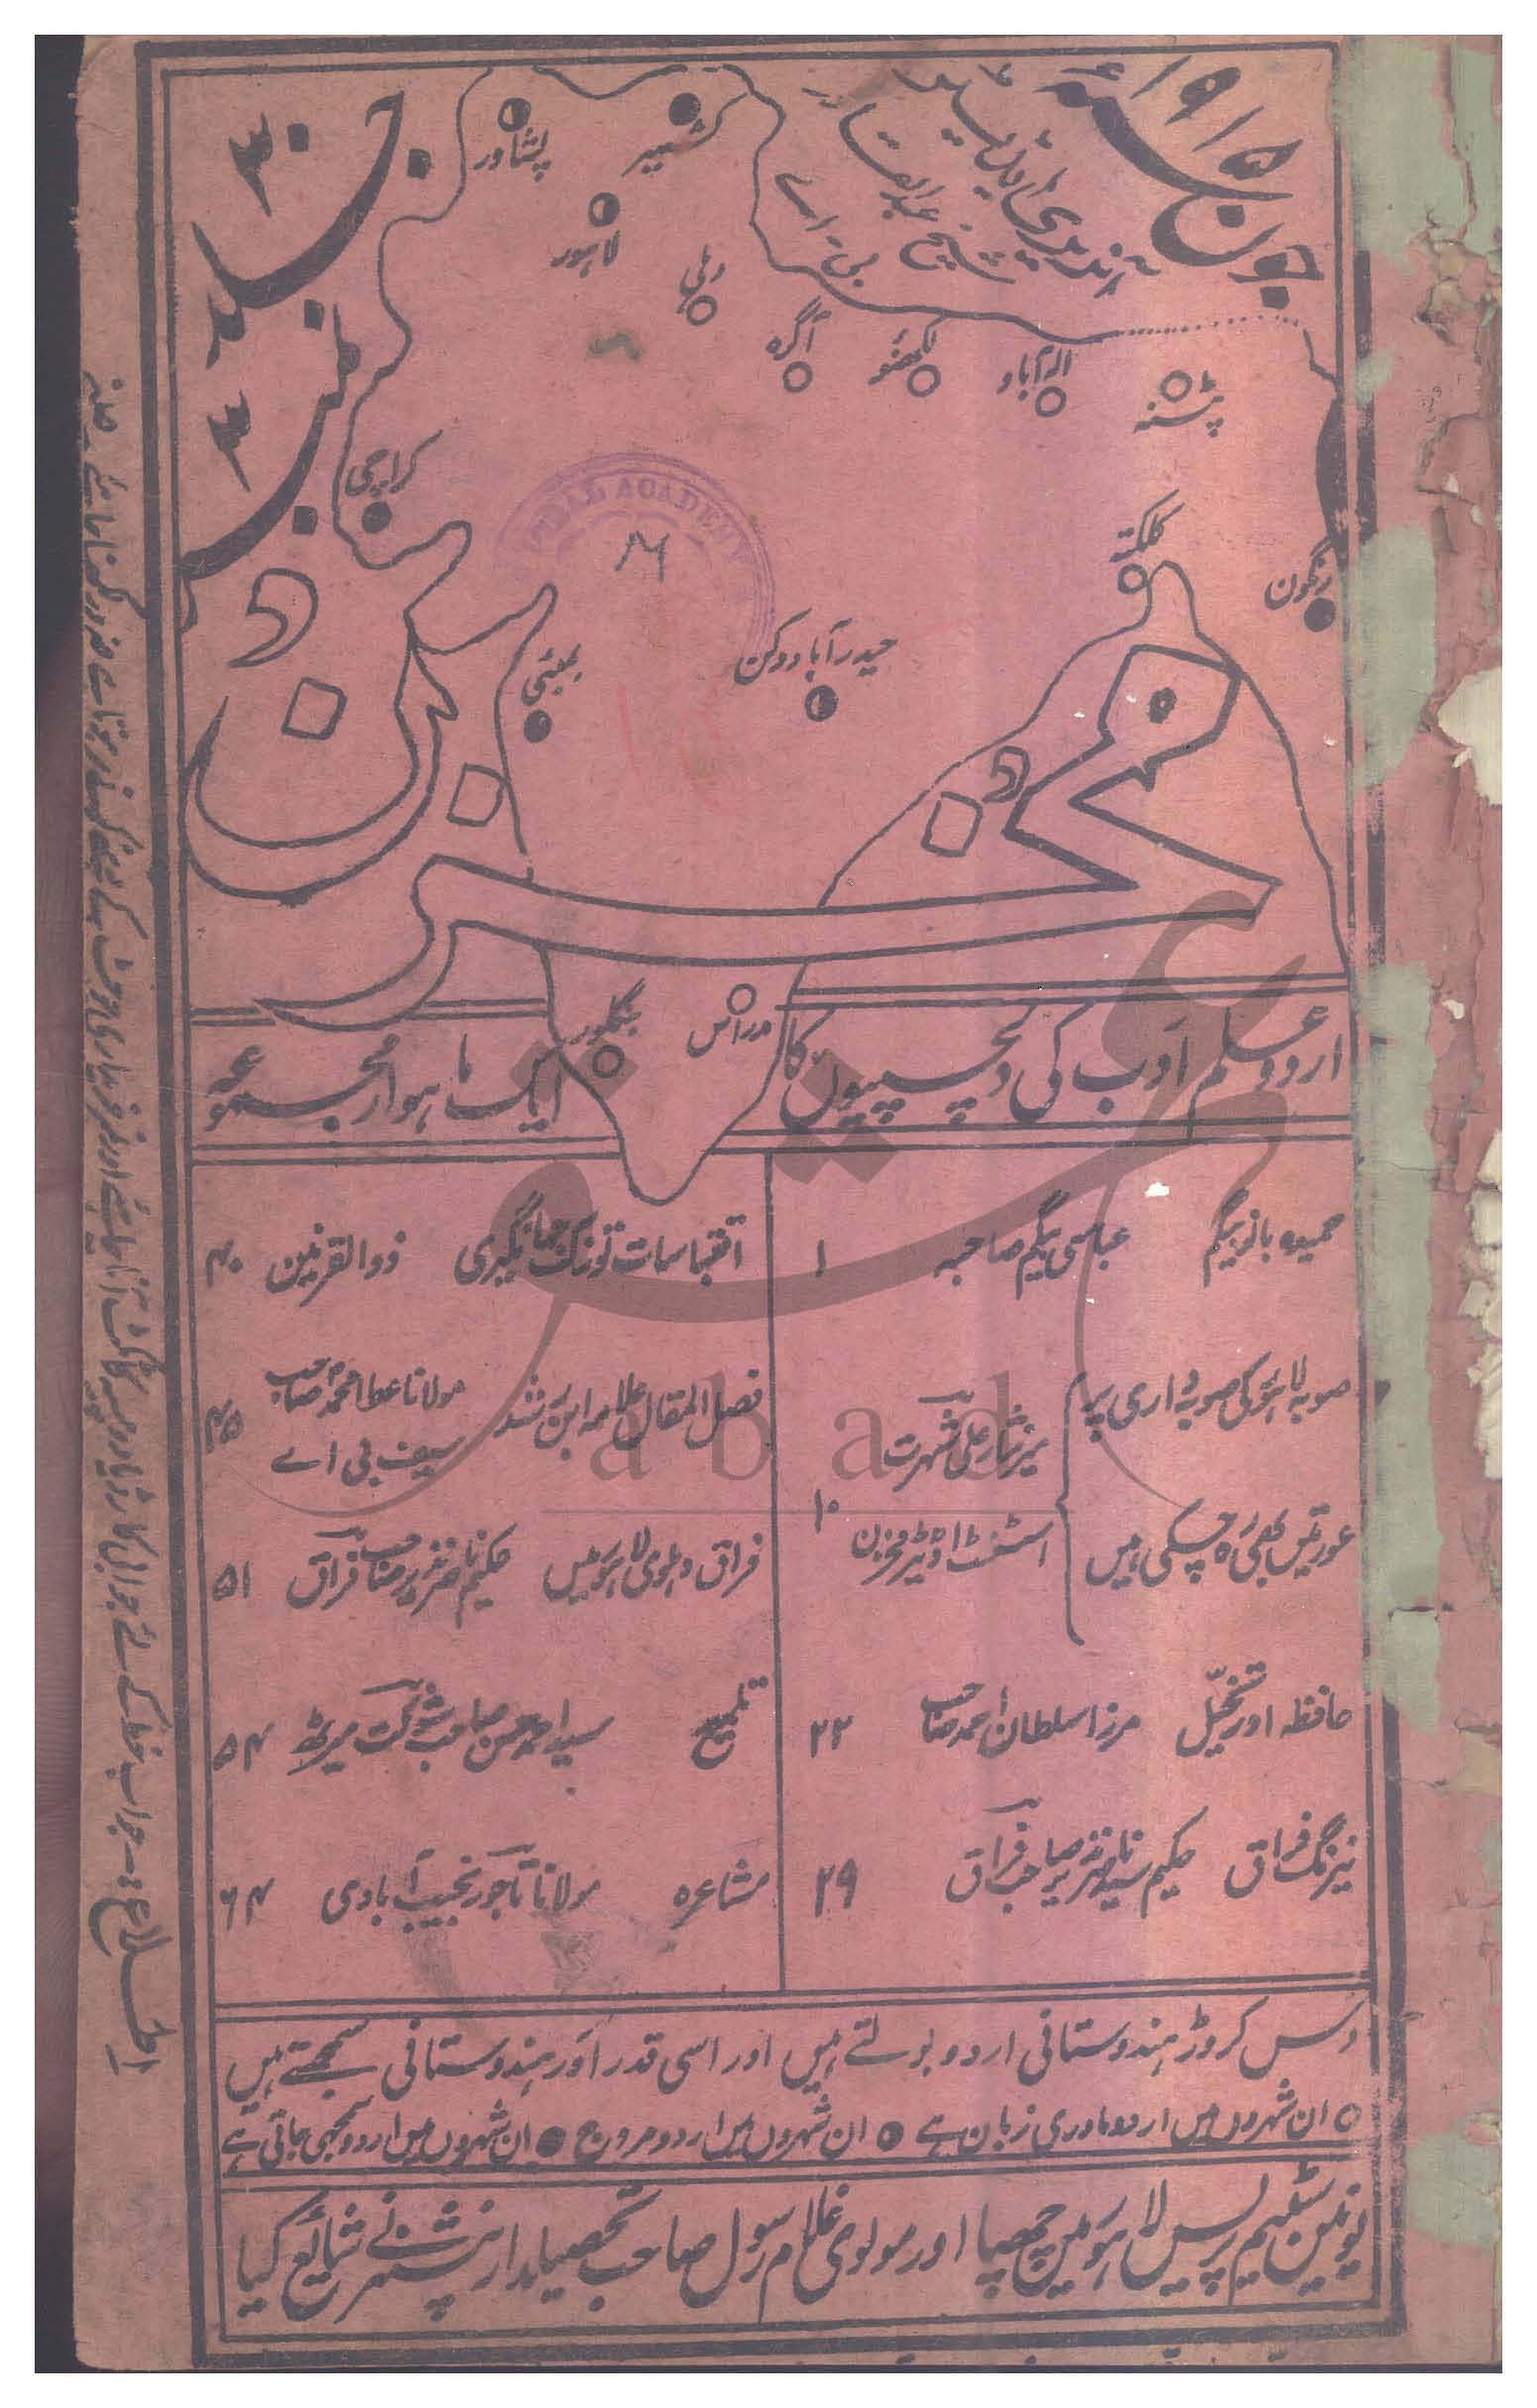 جون سنہ ۱۹۱۵ء
آنریری ایڈیٹر
شیخ عبدالقادر
بی اے
جلد ۳۰
نمبر ۳
کشمیر
پشاور
لاہور
دہلی
آگرہ
لکھنؤ
الہ آباد
پٹنہ
کراچی
کلکتہ
رنگون
حیدر آباد دکن
بمبئی
مخزن
مدراس
بنگلور
IQBAL ACADEMY
اردو علم ادب کی دلچسپیوں کا ایک ماہوار مجموعہ
حمیدہ بانو بیگم عباسی بیگم صاحبہ ۱
صوبہ لاہور کی صوبہ داری پر عورتیں بھی رہ چکی ہیں
میر نثار علی شہرت
اسسٹنٹ اڈیٹر مخزن ۱۰
حافظہ اور تخیل مرزا سلطان احمد صاحب ۲۲
نیرنگ فراق حکیم سید ناصر نذیر صاحب فراق ۲۹
اقتباسات توزک جہانگیری ذوالقرنین ۴۰
فصل المقال علامہ ابن رشد مولانا عطا محمد صاحب
سیف بی اے ۴۵
فراق دہلوی لاہور میں حکیم ناصر نذیر صاحب فراق ۵۱
تلمیح سید احمد حسن صاحب شوکت میرٹھ ۵۴
مشاعرہ مولانا تاجور نجیب آبادی ۶۴
دس کروڑ ہندوستانی اردو بولتے ہیں اور اسی قدر اور ہندوستانی سمجھتے ہیں
ان شہروں میں اردو مادری زبان ہے ان شہروں میں اردو مروج ان شہروں میں اردو سمجھی جاتی ہے
یونین سٹیم پریس لاہور میں چھپا اور مولوی غلام رسول صاحب تحصیلدار پنشنر نے شائع کیا
اطلاع
abad